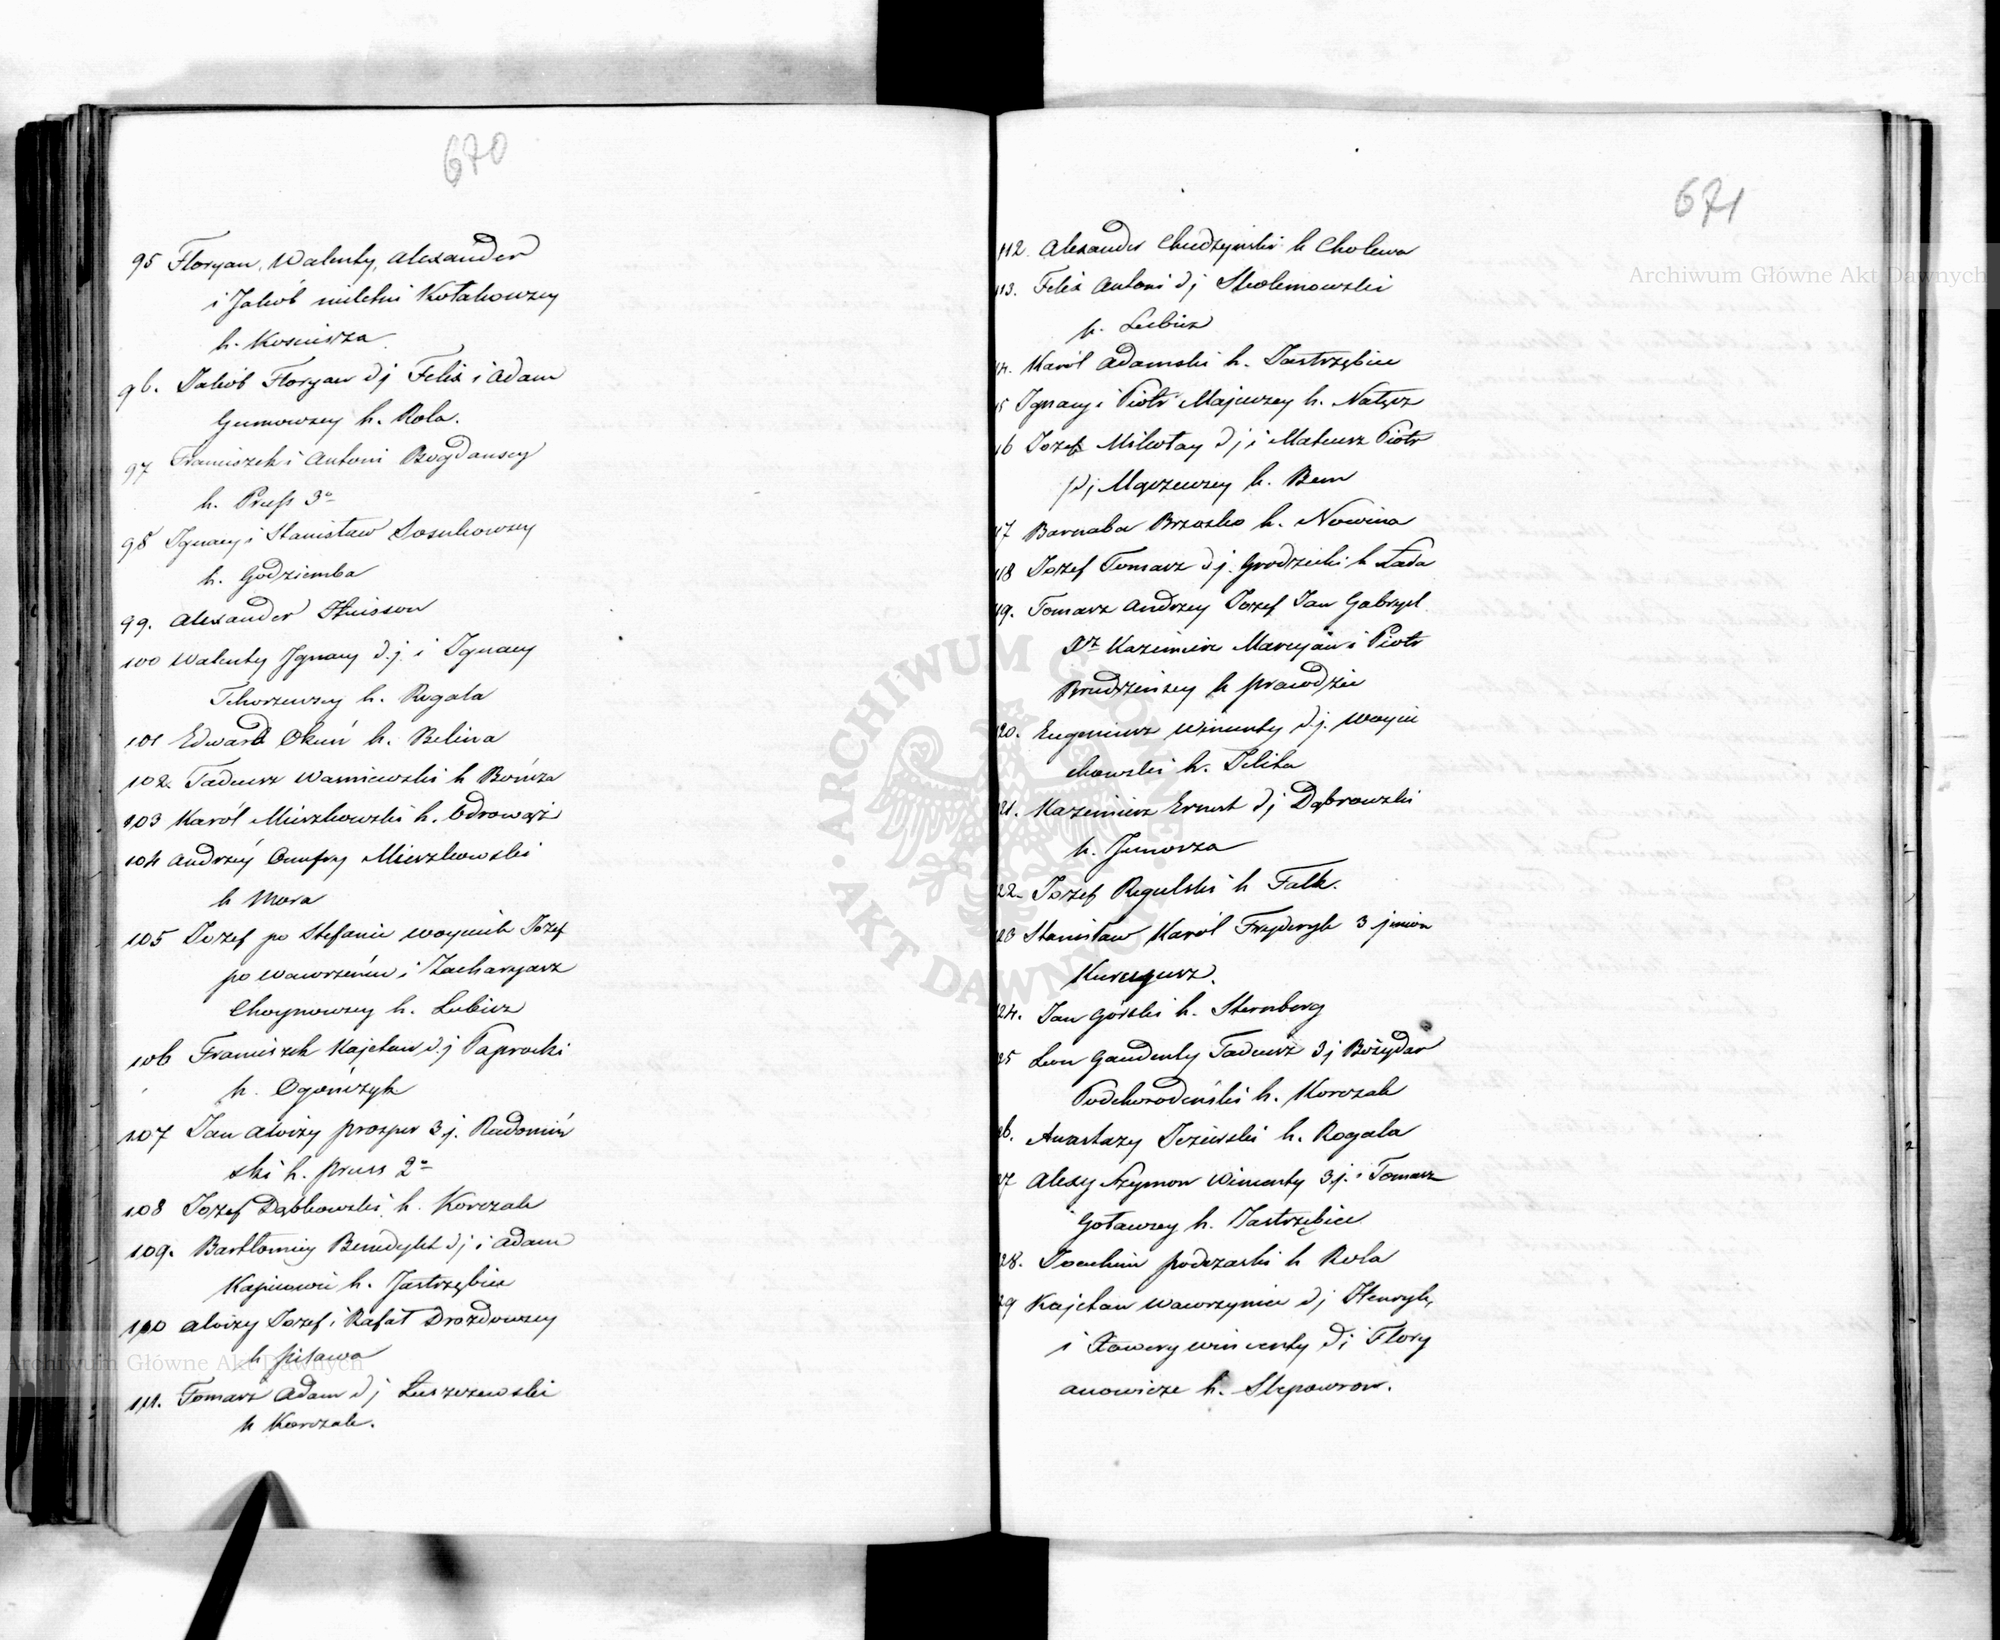 670
95 Floryan, Walenty, Alexander
i Jakób nieletni Kołakowscy
h. Kościesza
96. Jakób Floryan dj Felix i Adam
Gumowscy h. Rola.
97 Franciszek i Antoni Bogdanscy
h. Pruss 3º
98 Ignacy i Stanisław Sosnkowscy
h. Godziemba
99. Alexander Huisson
100 Walenty Ignacy d.j. i Ignacy
Tchorzewscy h. Rogala
101 Edward Okuń h. Belina
102. Tadeusz Waśniewski h Bończa
103 Karól Mieszkowski h. Odrowąż
104 Andrzéy Onufry Mieszkowski
h Mora
105 Jozef po Stefanie Woyciech Jozef
po Wawrzeńcu i Zacharyasz
Choynowscy h. Lubicz
106 Franciszek Kajetan d.j Paprocki
h. Ogończyk
107 Jan Aloizy Prosper 3 j. Radomiń
ski h. Pruss 2º
108 Jozef Dąbkowski h. Korczak
109. Bartłomiey Benedykt dj i Adam
Kapicowie h. Jastrzębiec
110 Aloizy Jozef i Rafał Drozdowscy
h Pilawa
111. Tomasz Adam dj Łuszczewski
h Korczak.
671
112. Alexander Chudzyński h Cholewa
113. Felix Antoni dj Skolimowski
h. Lubicz
14. Karól Adamski h. Jastrzębiec
15 Ignacy i Piotr Majewscy h. Nałęcz
16 Jozef Mikołay dj i Mateusz Piotr
dj Mączewscy h. Bem
17 Barnaba Brzosko h. Nowina
118 Jozef Tomasz dj. Grodzicki h Łada
19. Tomasz Andrzey Jozef Jan Gabryel
Kazimierz Marcyan i Piotr
Brudzińscy h Prawdzic
20. Eugeniusz Wincenty d.j. Woycie
chowski h. Jelita
21. Kazimierz Ernest dj Dąbrowski
h. Junosza
22. Jozef Regulski h Falk.
123 Stanisław Karól Fryderyk 3 jmion
24. Jan Górski h. Sternberg
25 Leon Gaudenty Tadeusz 3j Bożydar
Podchorodeński h. Korczak
26. Anastazy Jezierski h. Rogala
27 Alexy Szymon Wincenty 3 j. i Tomasz
Goławscy h. Jastrzębiec
28. Joachim Podczaski h Rola
29 Kajetan Wawrzyniec dj Henryk,
i Xawery Wincenty dj Flory
anowicze h. Slepowron.
ARCHIWUM GŁÓWNE AKT DAWNYCH
Archiwum Główne Akt Dawnych
Archiwum Główne Akt Dawnych